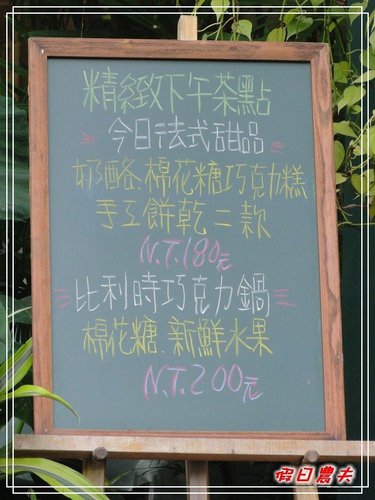 精緻下午茶點
今日法式甜品
奶酪.棉花糖巧克力糕
手工餅乾二款
N.T.180元
比利時巧克力鍋
棉花糖.新鮮水果
N.T.200元
假日農夫